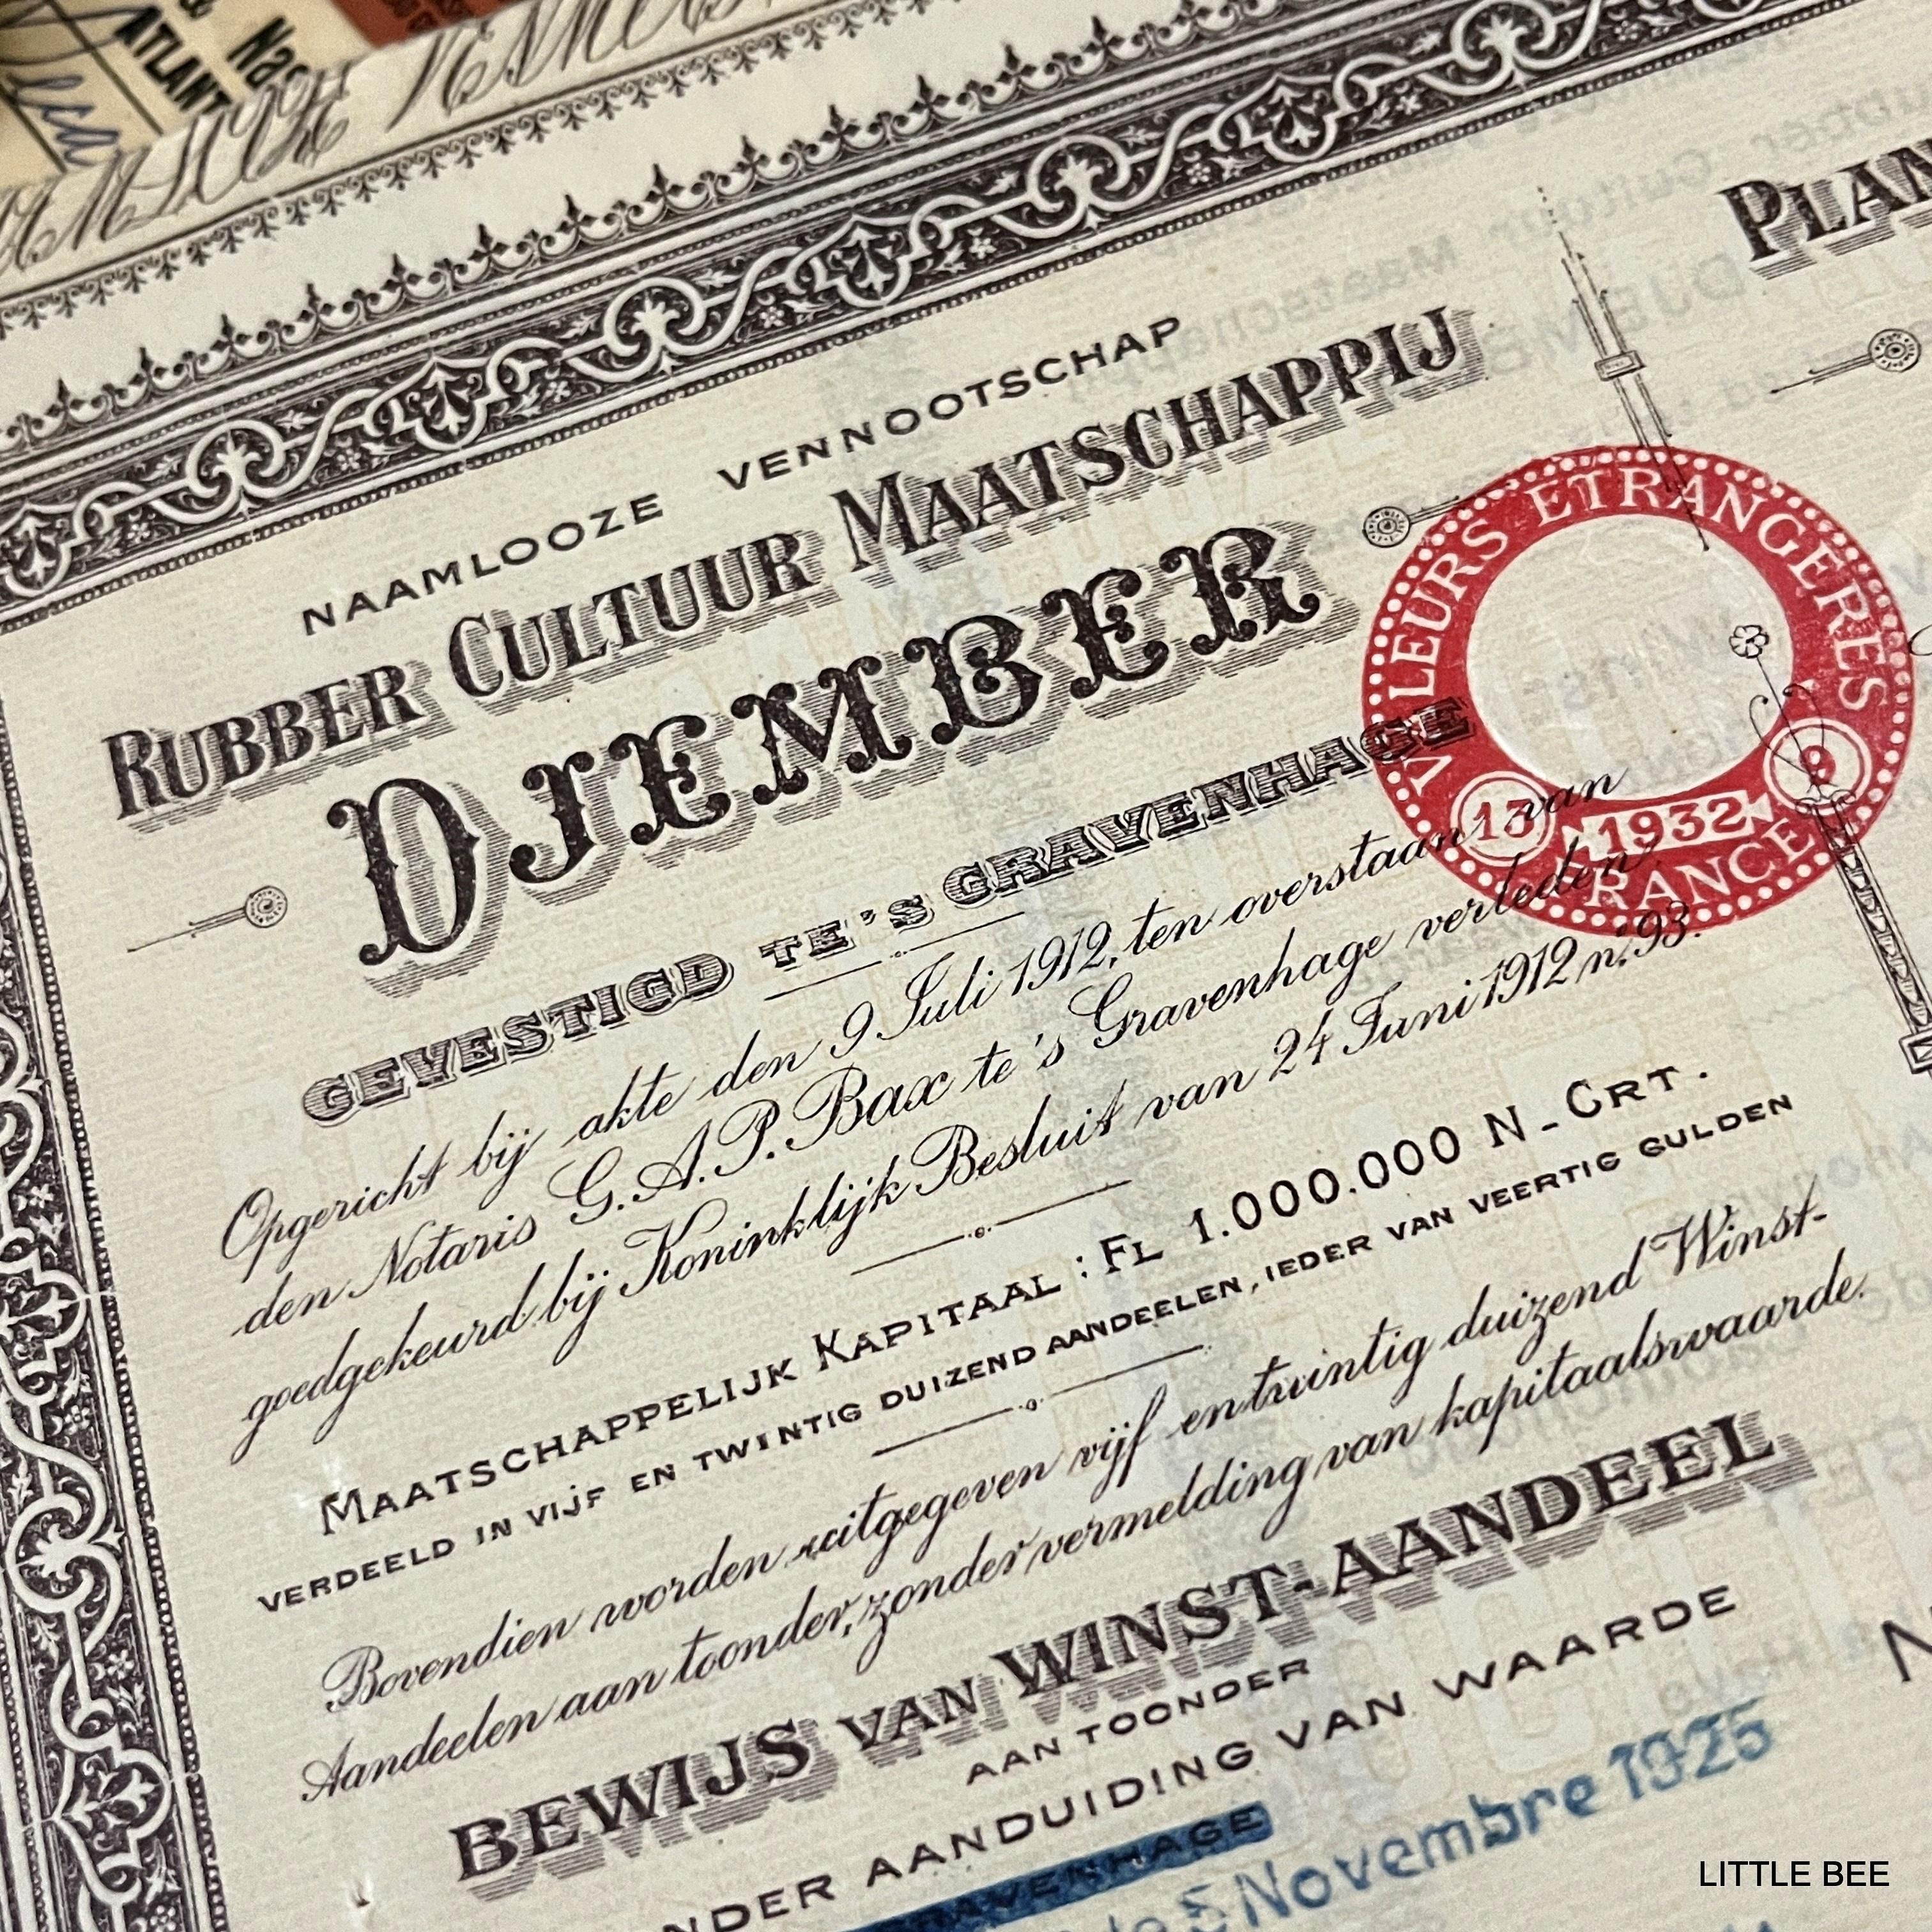 ATLANT
NAAMLOOZE VENNOOTSCHAP
RUBBER CULTUUR MAATSCHAPPIJ
DJEMBER
GEVESTIGD TE 'S GRAVENHAGE
Opgericht bij akte den 9 Juli 1912, ten overstaan van
den Notaris G.A.P. Bax te 's Gravenhage verleden,
goedgekeurd bij Koninklijk Besluit van 24 Juni 1912 n.º 93.
MAATSCHAPPELIJK KAPITAAL : FL 1.000.000 N-CRT.
VERDEELD IN VIJF EN TWINTIG DUIZEND AANDEELEN, IEDER VAN VEERTIG GULDEN
Bovendien worden uitgegeven vijf en twintig duizend Winst-
Aandeelen aan toonder, zonder vermelding van kapitaalswaarde.
BEWIJS VAN WINST-AANDEEL
AAN TOONDER
NDER AANDUIDING VAN WAARDE
RAVENHAGE
Novembre 1925
VALEURS ETRANGERES
13
1932
9
FRANCE
PLAN
LITTLE BEE